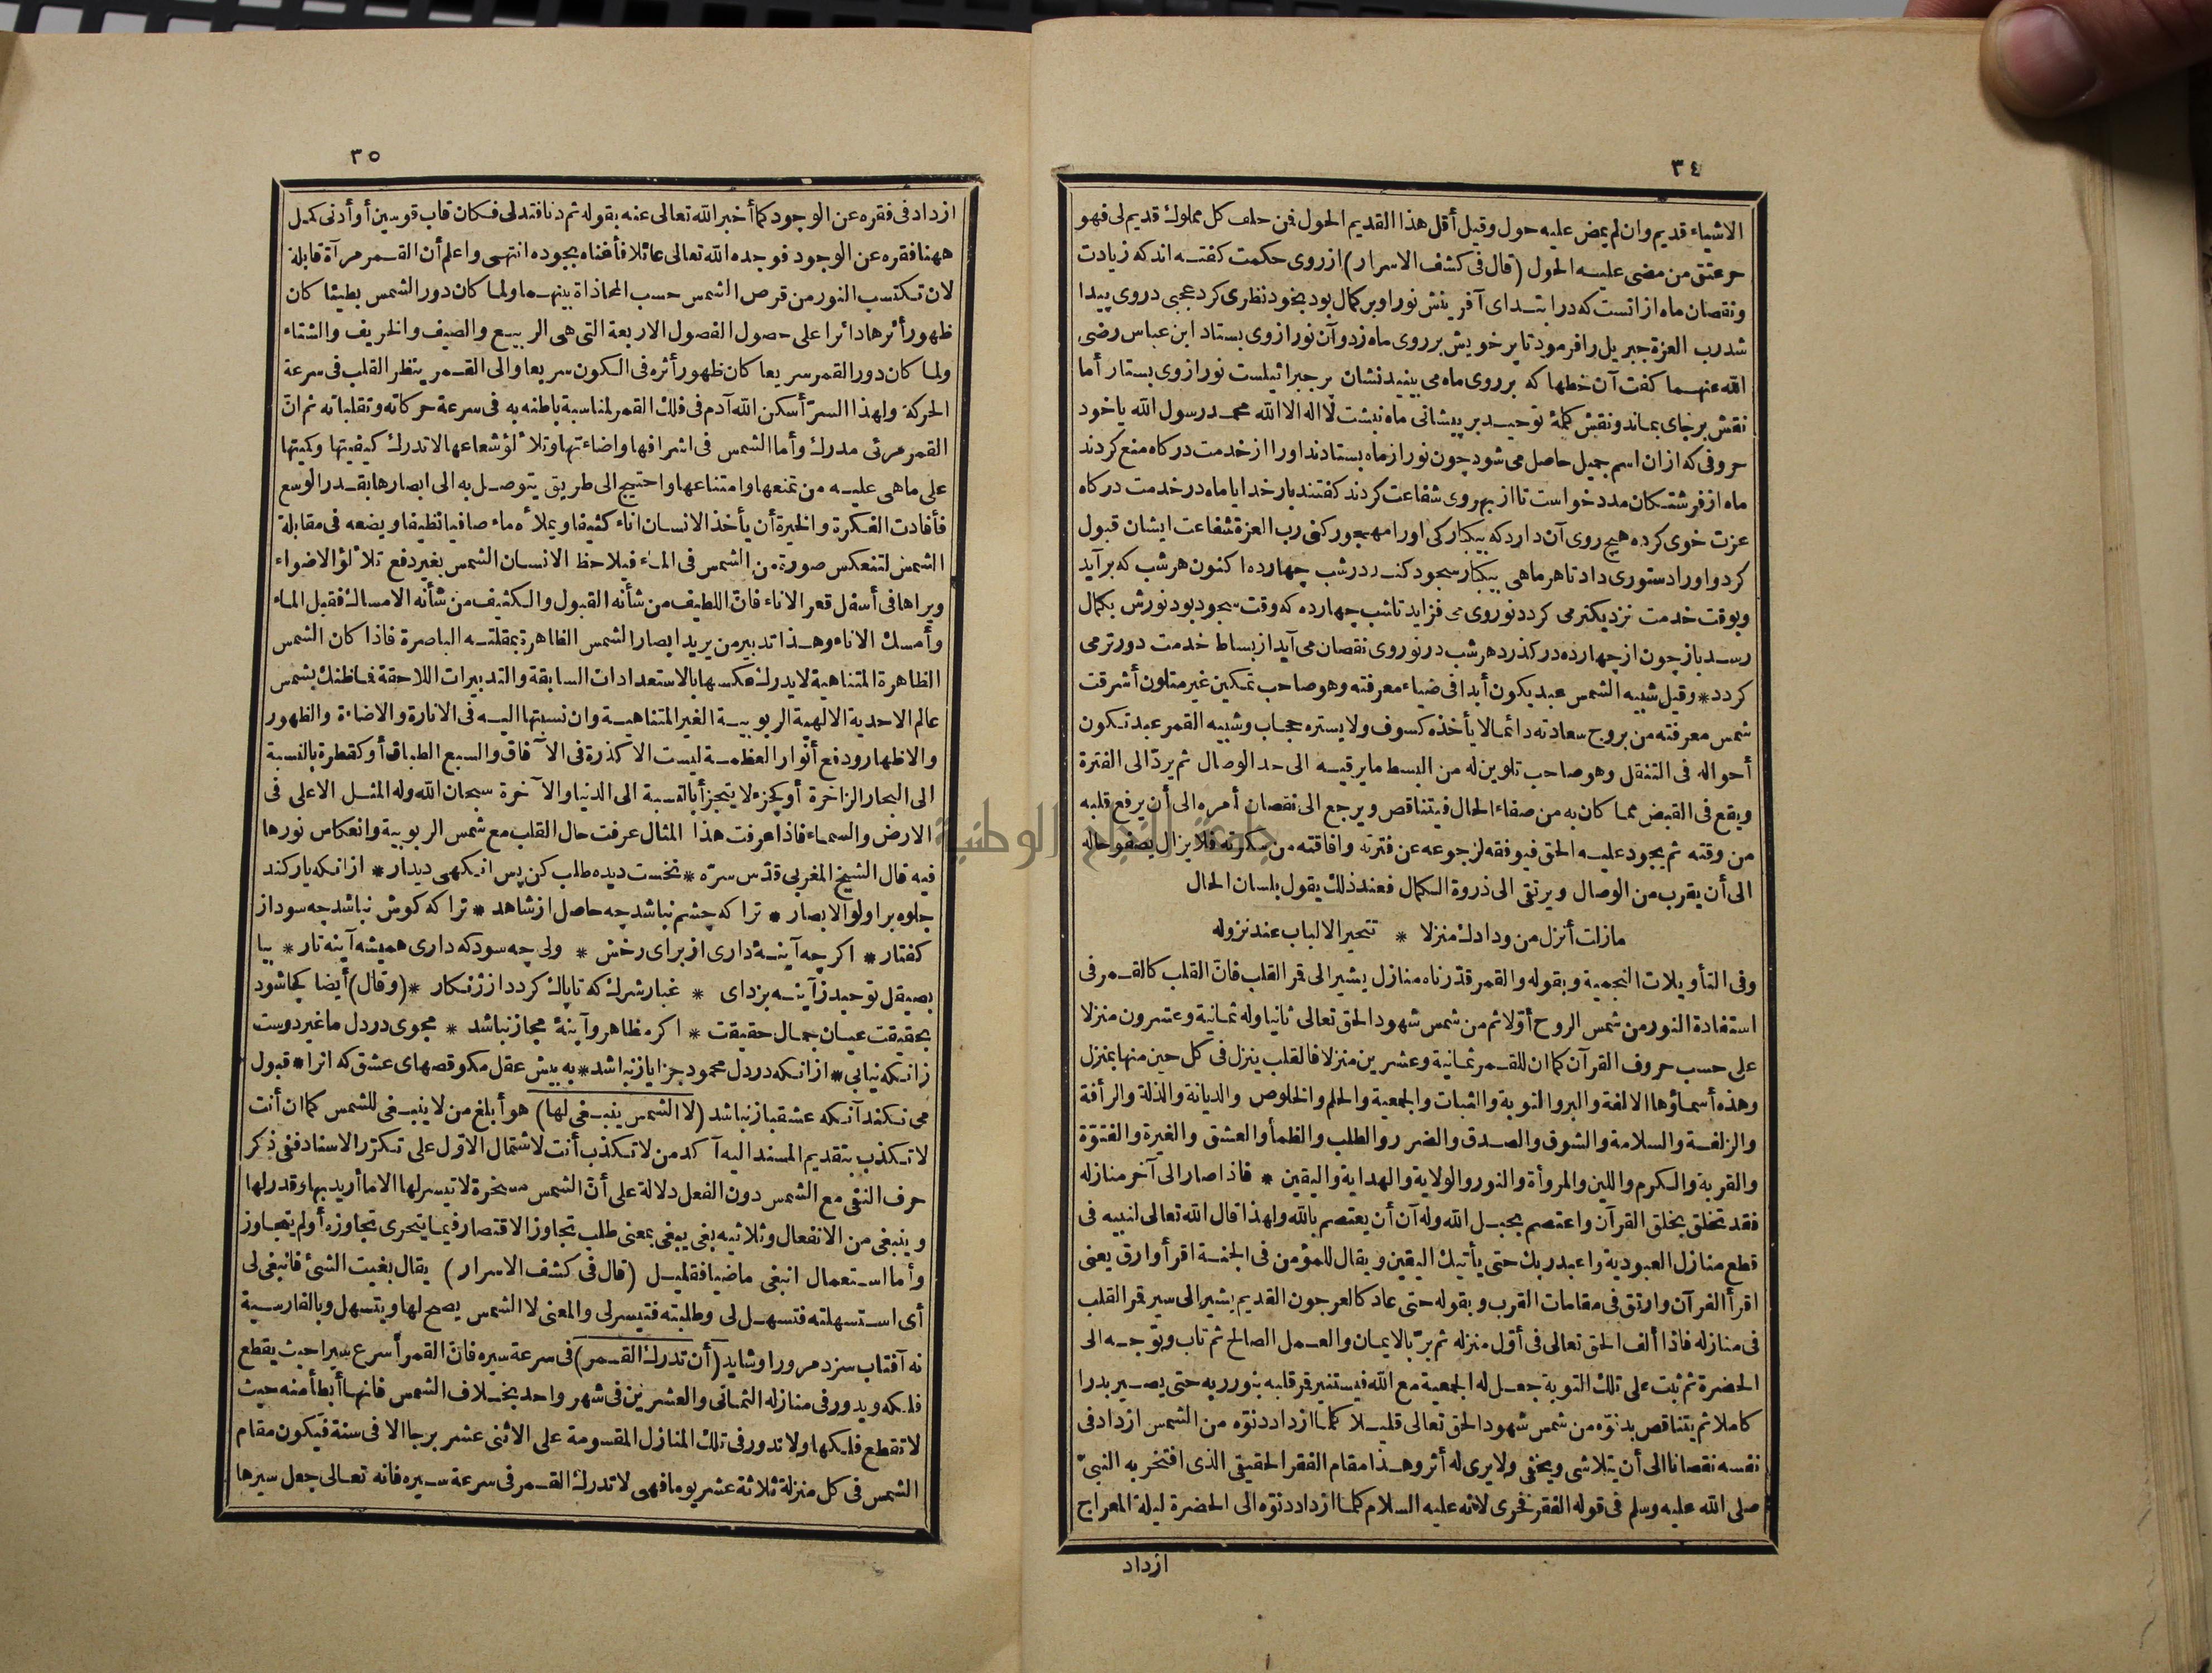 ٣٤
الاشياء قديم وان لم يمض عليه حول وقيل أقل هذا القديم الحول فمن حلف كل مملوك قديم لى فهو
حر عتق من مضى عليه الحول (قال فى كشف الاسرار) ازروى حكمت كفته اند كه زيادت
ونقصان ماه ازانست كه در ابتداى آفرينش نور او بر كمال بود بخود نظرى كرد عجبى دروى پيدا
شد رب العزة جبريل را فرمود تا پر خويش بر روى ماه زد و آن نور ازوى بستاد ابن عباس رضى
الله عنهما كفت آن خطها كه بر روى ماه مى بينيد نشان پر جبرائيلست نور ازوى بستار أما
نقش برجاى بماند ونقش كلمهٔ توحيد بر پيشانى ماه نبشت لا اله الا الله محمد رسول الله يا خود
حروفى كه ازان اسم جميل حاصل مى شود چون نور از ماه بستادند اورا از خدمت دركاه منع كردند
ماه از فرشتكان مدد خواست تا از بهروى شفاعت كردند كفتند بار خدايا ماه در خدمت دركاه
عزت خوى كرده هيچ روى آن دارد كه بيكباركى اورا مهجور كنى رب العزة شفاعت ايشان قبول
كرد واورا دستورى داد تا هر ماهى بيكبار سجود كند در شب چهارده اكنون هر شب كه برآيد
وبوقت خدمت نزديكتر مى كردد نوروى مى فزايد تا شب چهارده كه وقت سجود بود نورش بكمال
رسد باز چون از چهارده در كذرد هر شب در نوروى نقصان مى آيد از بساط خدمت دورتر مى
كردد * وقيل شبيه الشمس عبد يكون أبدا فى ضياء معرفته وهو صاحب تمكين غير متلون أشرقت
شمس معرفته من بروج سعادته دائما لا يأخذه كسوف ولا يستره حجاب وشبيه القمر عبد تكون
أحواله فى التنقل وهو صاحب تلوين له من البسط ما يرقيه الى حد الوصال ثم يردّ الى الفترة
ويقع فى القبض مما كان به من صفاء الحال فيتناقص ويرجع الى نقصان أمره الى أن يرفع قلبه
من وقته ثم يجود عليه الحق فيوفقه لرجوعه عن فترته وافاقته من سكرته فلا يزال يصفو حاله
الى أن يقرب من الوصال ويرتقى الى ذروة الكمال فعند ذلك يقول بلسان الحال
مازلت أنزل من ودادك منزلا * تتحير الالباب عند نزوله
وفى التأويلات النجمية وبقوله والقمر قدّرناه منازل يشير الى قمر القلب فانّ القلب كالقمر فى
استفادة النور من شمس الروح أوّلا ثم من شمس شهود الحق تعالى ثانيا وله ثمانية وعشرون منزلا
على حسب حروف القرآن كما ان للقمر ثمانية وعشرين منزلا فالقلب ينزل فى كل حين منها بمنزل
وهذه أسماؤها الالفة والبر والتوبة والثبات والجمعية والحلم والخلوص والديانة والذلة والرأفة
والزلفة والسلامة والشوق والصدق والضرر والطلب والظمأ والعشق والغيرة والفتوّة
والقربة والكرم واللين والمروأة والنور والولاية والهداية واليقين * فاذا صار الى آخر منازله
فقد تخلق بخلق القرآن واعتصم بحبل الله وله آن أن يعتصم بالله ولهذا قال الله تعالى لنبيه فى
قطع منازل العبودية واعبد ربك حتى يأتيك اليقين ويقال للمؤمن فى الجنة اقرأ وارق يعنى
اقرأ القرآن وارتق فى مقامات القرب وبقوله حتى عاد كالعرجون القديم يشير الى سير قمر القلب
فى منازله فاذا ألف الحق تعالى فى أوّل منزله ثم برّ بالايمان والعمل الصالح ثم تاب وتوجه الى
الحضرة ثم ثبت على تلك التوبة جعل له الجمعية مع الله فيستنير قمر قلبه بنور ربه حتى يصير بدرا
كاملا ثم يتناقص بدنوّه من شمس شهود الحق تعالى قليلا كلما ازداد دنوّه من الشمس ازداد فى
نفسه نقصانا الى أن يتلاشى ويخفى ولا يرى له أثر وهذا مقام الفقر الحقيقى الذى افتخر به النبىّ
صلى الله عليه وسلم فى قوله الفقر فخرى لانه عليه السلام كلما ازداد دنوّه الى الحضرة ليلة المعراج
ازداد
٣٥
ازداد فى فقره عن الوجود كما أخبر الله تعالى عنه بقوله ثم دنا فتدلى فكان قاب قوسين أو أدنى كمل
ههنا فقره عن الوجود فوجده الله تعالى عائلا فأغناه بجوده انتهى واعلم أن القمر مرآة قابلة
لان تكتسب النور من قرص الشمس حسب المحاذاة بينهما ولما كان دور الشمس بطيئا كان
ظهور أثرها دائرا على حصول الفصول الاربعة التى هى الربيع والصيف والخريف والشتاء
ولما كان دور القمر سريعا كان ظهور أثره فى الكون سريعا والى القمر ينظر القلب فى سرعة
الحركة ولهذا السرّ أسكن الله آدم فى فلك القمر لمناسبة باطنه به فى سرعة حركاته وتقلباته ثم انّ
القمر مرئى مدرك وأما الشمس فى اشراقها واضاءتها وتلألؤ شعاعها لا تدرك كيفيتها وكميتها
على ما هى عليه من تمنعها وامتناعها واحتيج الى طريق يتوصل به الى ابصارها بقدر الوسع
فأفادت الفكرة والخيرة أن يأخذ الانسان اناء كثيفا ويملأه ماء صافيا نظيفا ويضعه فى مقابلة
الشمس لتنعكس صورة من الشمس فى الماء فيلاحظ الانسان الشمس بغير دفع تلألؤ الاضواء
ويراها فى أسفل قعر الاناء فانّ اللطيف من شأنه القبول والكثيف من شأنه الامساك فقبل الماء
وأمسك الاناء وهذا تدبير من يريد ابصار الشمس الظاهرة بمقلته الباصرة فاذا كان الشمس
الظاهرة المتناهية لا يدرك عكسها بالاستعدادات السابقة والتدبيرات اللاحقة فما ظنك بشمس
عالم الاحدية الالهية الربوبية الغير المتناهية وان نسبتها اليه فى الانارة والاضاءة والظهور
والاظهار ودفع أنوار العظمة ليست الا كذرة فى الآفاق والسبع الطباق أو كقطرة بالنسبة
الى البحار الزاخرة أو كجزء لا يتجزأ بالنسبة الى الدنيا والآخرة سبحان الله وله المثل الاعلى فى
الارض والسماء فاذا عرفت هذا المثال عرفت حال القلب مع شمس الربوبية وانعكاس نورها
فيه قال الشيخ المغربى قدّس سرّه * نخست ديده طلب كن پس انكهى ديدار * ازانكه يار كند
جلوه بر اولو الابصار * ترا كه چشم نباشد چه حاصل از شاهد * ترا كه كوش نباشد چه سود از
كفتار * اكر چه آينه دارى از براى رخش * ولى چه سود كه دارى هميشه آينه تار * بيا
بصيقل توحيد ز آينه بزداى * غبار شرك كه تا پاك كردد از ژنكار * (وقال) أيضا كجا شود
بحقيقت عيان جمال حقيقت * اكر مظاهر و آينهٔ مجاز نباشد * مجوى در دل ما غير دوست
زانكه نيابى * ازانكه در دل محمود جز اياز نباشد * به پيش عقل مكو قصهاى عشق كه انرا * قبول
مى نكند آنكه عشقباز نباشد (لا الشمس ينبغى لها) هو أبلغ من لا ينبغى للشمس كما ان أنت
لا تكذب بتقديم المسند اليه آكد من لا تكذب أنت لاشتمال الاوّل على تكرّر الاسناد ففى ذكر
حرف النفى مع الشمس دون الفعل دلالة على أنّ الشمس مسخرة لا تيسر لها الا ما أريد بها وقدر لها
وينبغى من الانفعال وثلاثيه بغى يبغى بمعنى طلب تجاوز الاقتصار فيما يتحرى تجاوزه أو لم يتجاوز
وأما استعمال انبغى ماضيا فقليل (قال فى كشف الاسرار) يقال بغيت الشئ فانبغى لى
أى استسهلته فتسهل لى وطلبته فتيسر لى والمعنى لا الشمس يصح لها ويتسهل وبالفارسية
نه آفتاب سزد مر ورا وشايد (أن تدرك القمر) فى سرعة سيره فانّ القمر أسرع سيرا حيث يقطع
فلكه ويدور فى منازله الثمانى والعشرين فى شهر واحد بخلاف الشمس فانها أبطأ منه حيث
لا تقطع فلكها ولا تدور فى تلك المنازل المقسومة على الاثنى عشر برجا الا فى سنة فيكون مقام
الشمس فى كل منزلة ثلاثة عشر يوما فهى لا تدرك القمر فى سرعة سيره فانه تعالى جعل سيرها